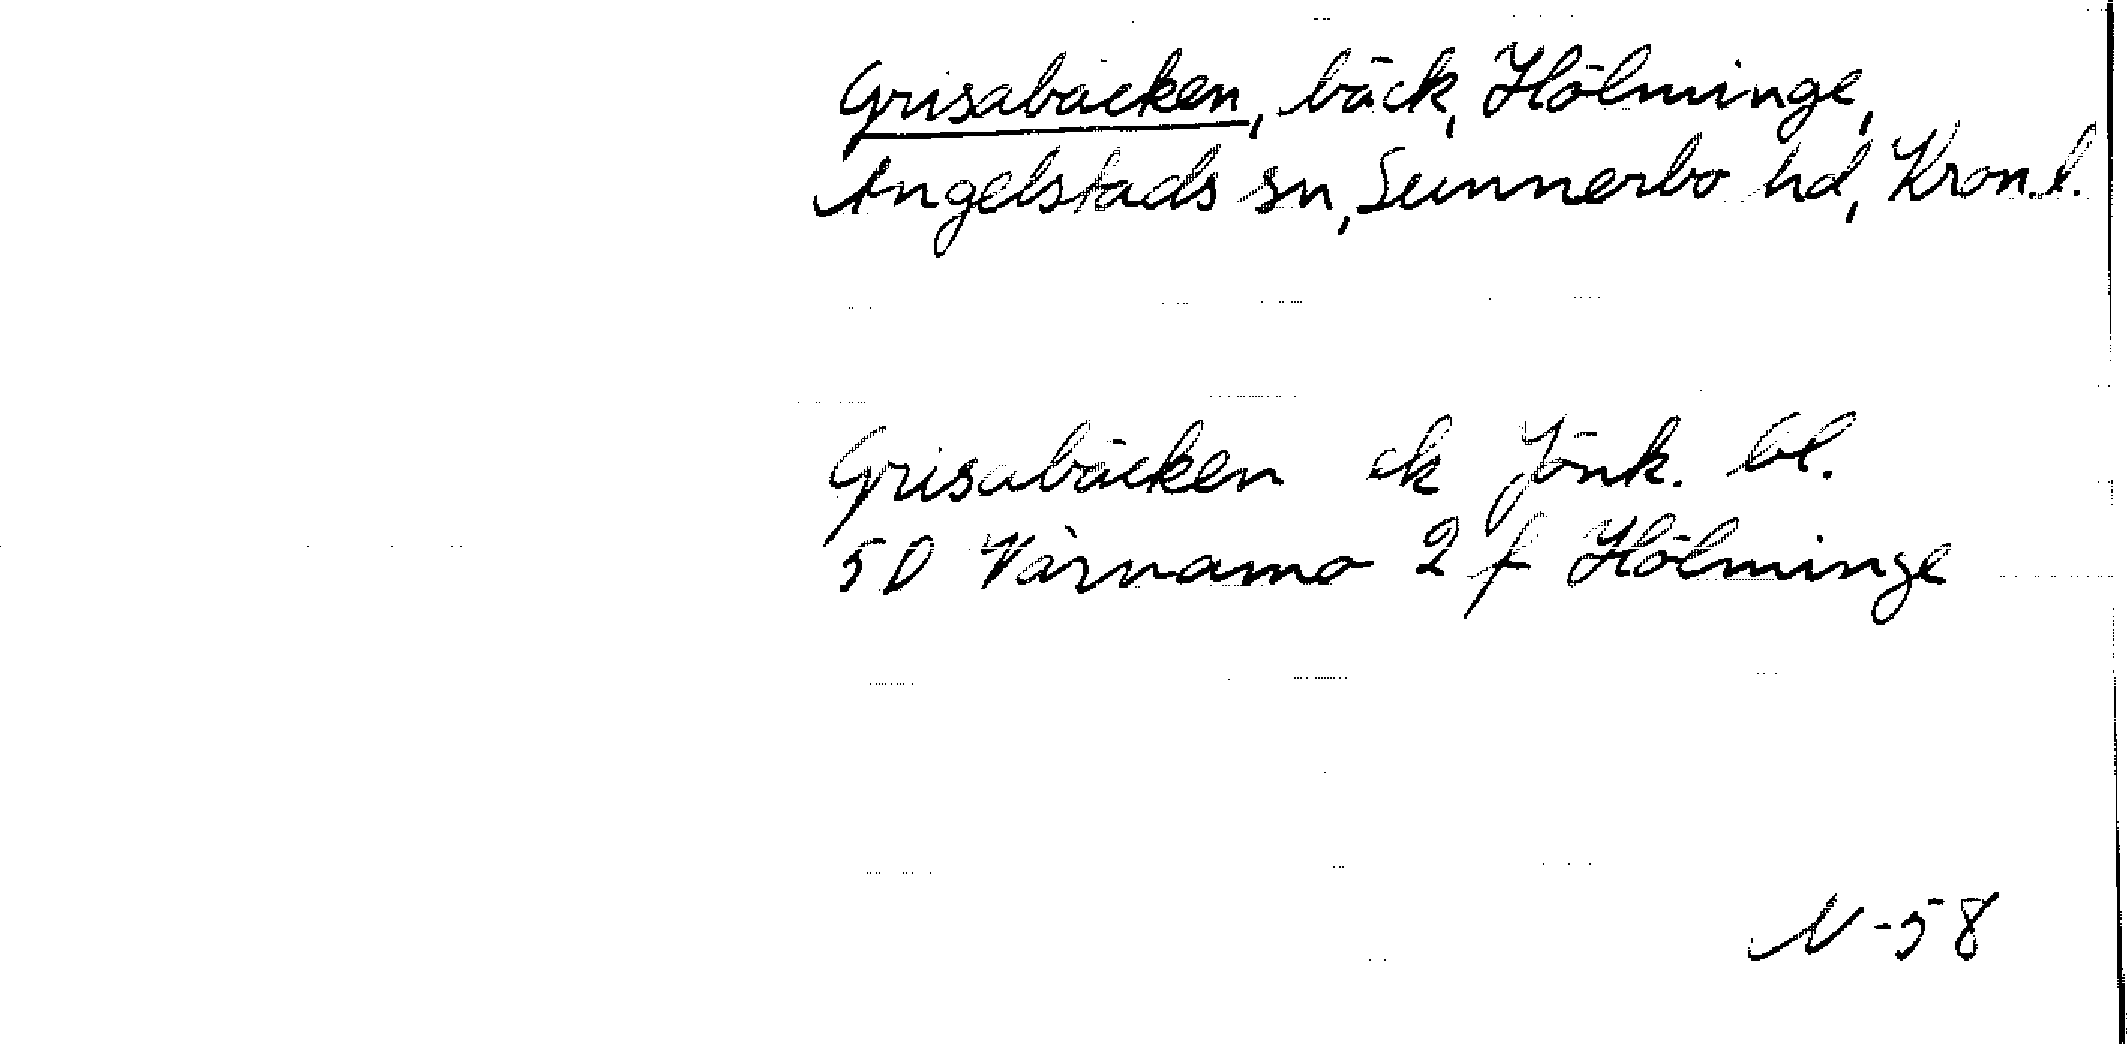 Grisabäcken, bäck, Hölminge,
Angelstads sn, Sunnerbo hd, Kron.l.
Grisabäcken ek Jönk. bl.
5D Värnamo 2 f Hölminge
N-58